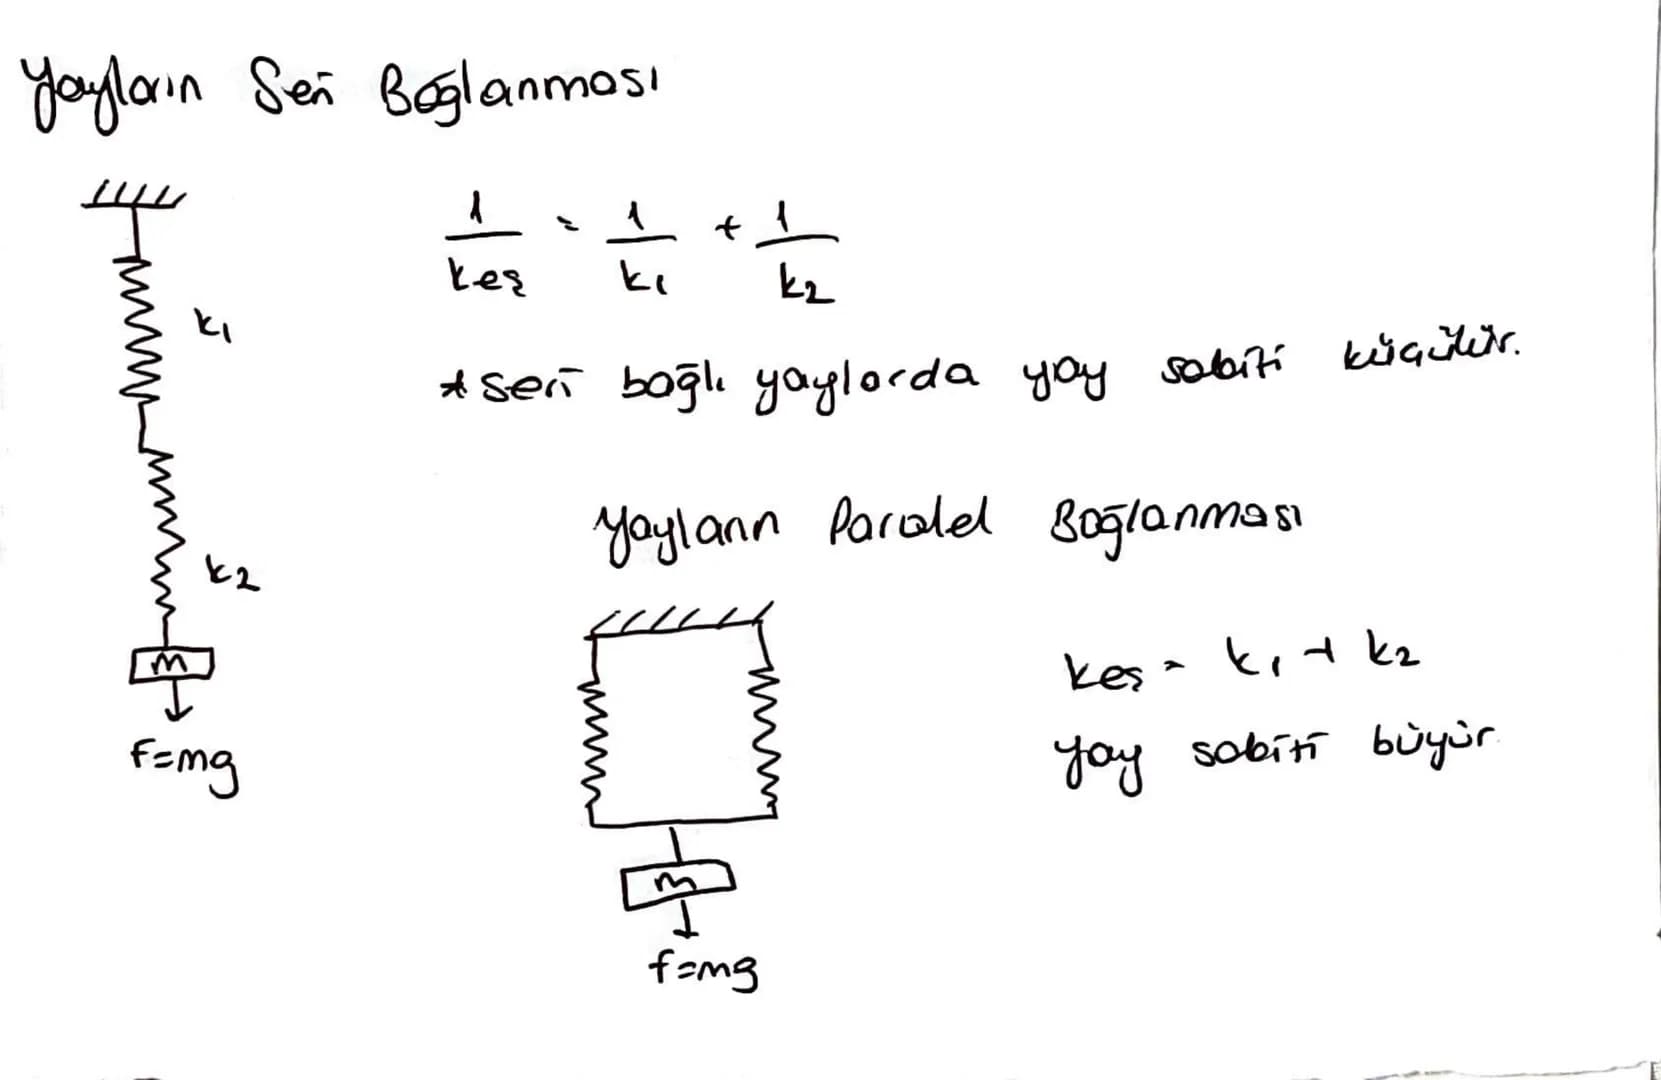 Yayların Seri Bağlanması
1/keş = 1/k1 + 1/k2
k1
* Seri bağlı yaylarda yay sabiti küçülür.
Yayların Paralel Bağlanması
k2
m
F=mg
keş = k1 + k2
yay sabiti büyür
m
f=mg